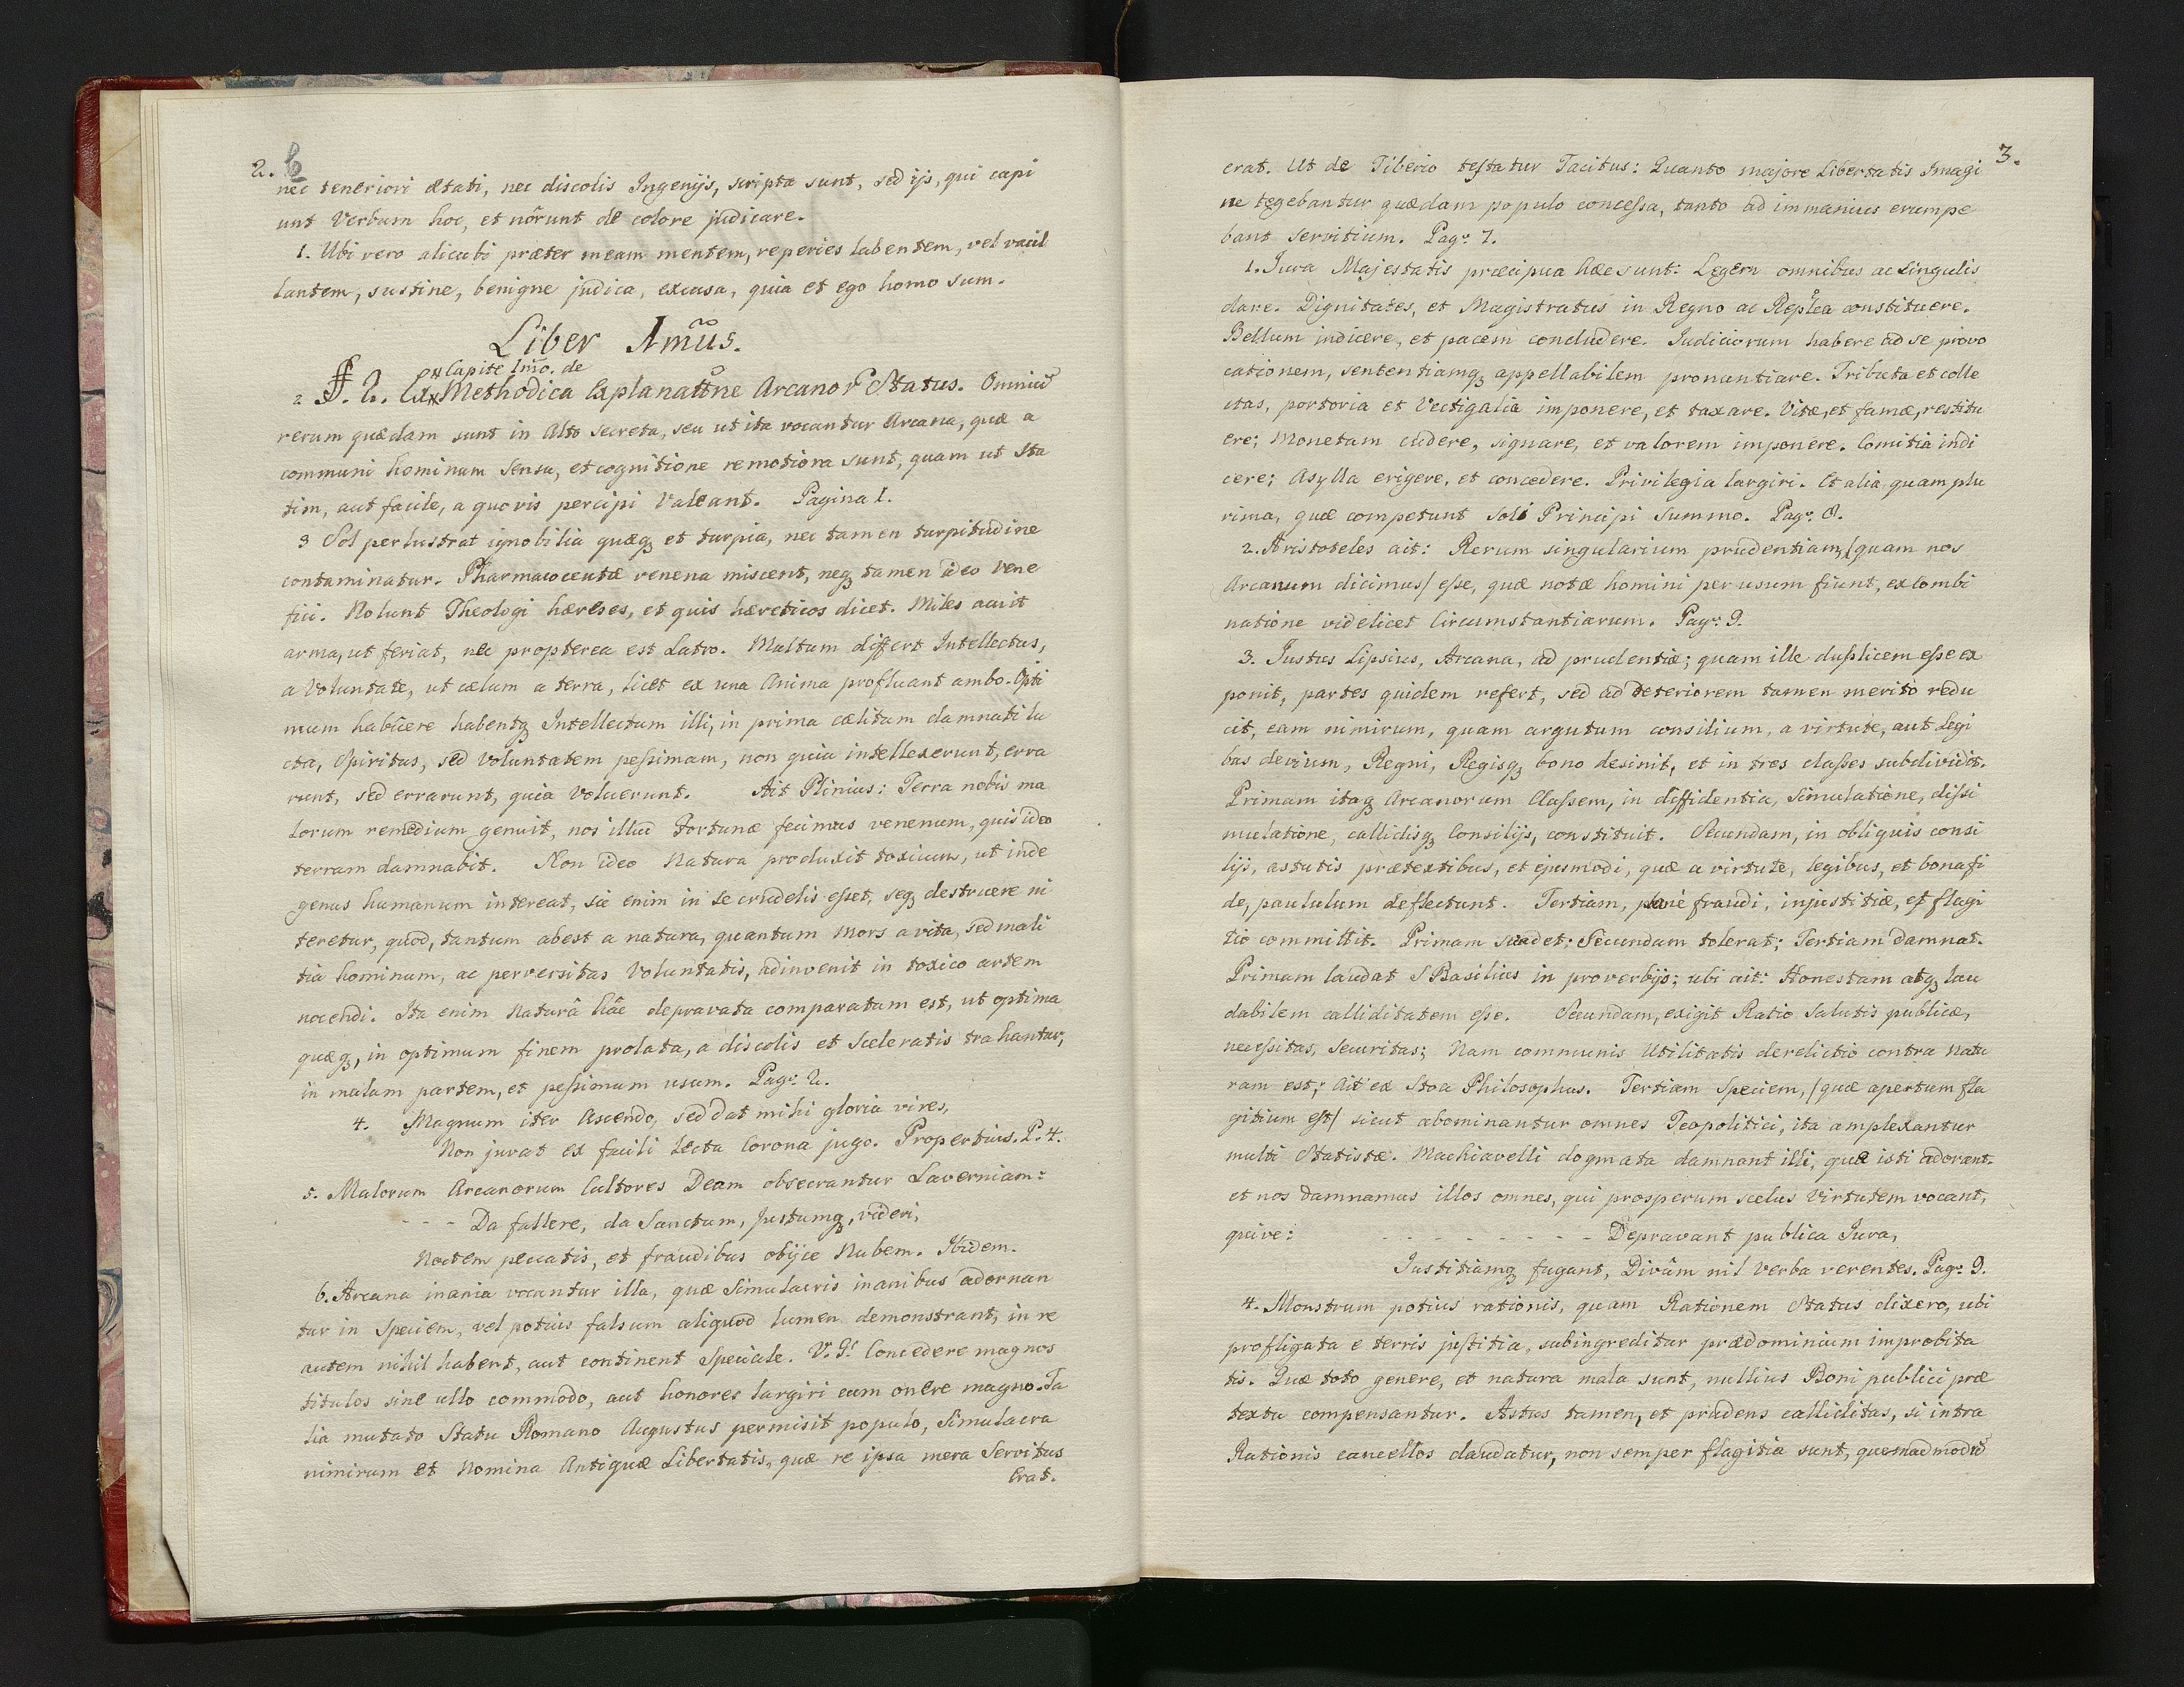 2. b
nec teneriori ætati, nec discolis Ingenijs, scripta sunt, sed ijs, qui capi
unt Verbum hoc, et nôrunt de colore judicare.
1. Ubi vero alicubi præter meam mentem, reperies labentem, vel vacil
lantem, sustine, benigne judica, excusa, quia et ego homo sum.
Liber 1mũs.
Capite 1mo. de
2 §. 2. Ex Methodica Explanatõne Arcanor Status. Omniũ
rerum quædam sunt in Alto secreta, seu ut ita vocantur Arcana, quæ a
communi hominum sensu, et cognitione remotiora sunt, quam ut Sta
tim, aut facile, a quovis percipi Valeant. Pagina 1.
3 Sol perlustrat ignobilia quæq; et turpia, nec tamen turpitudine
contaminatur. Pharmacoceutæ venena miscent, neq; tamen ideo Vene
fici. Nolunt Theologi hæreses, et quis hæreticos dicet. Miles acuit
arma, ut feriat, nec propterea est Latro. Multum differt Intellectus,
a Voluntate, ut cælum a terra, licet ex una Anima profluant ambo. Opti
mum habuere habentq; Intellectum illi, in prima cælitum damnati lu
cta, Spiritus, sed Voluntatem peſsimam, non quia intellexerunt, erra
runt, sed errarunt, quia Voluerunt. Ait Plinius: Terra nobis ma
lorum remedium genuit, nos illud Fortunæ fecimus venenum, quis ideo
terram damnabit. Non ideo Natura produxit toxicum, ut inde
genus humanum intereat, sic enim in se crudelis eſset, seq; destruere ni
teretur, quod, tantum abest a natura, quantum Mors a vita, sed mali
tia hominum, ac perversitas Voluntatis, adinvenit in toxico artem
nocendi. Ita enim Naturâ hâc depravata comparatum est, ut optima
quæq;, in optimum finem prolata, a discolis et Sceleratis trahantur,
in malam partem, et peſsimum usum. Pag: 2.
4. Magnum iter Ascendo, sed dat mihi gloria vires,
Non juvat ex facili Lecta Corona jugo. Propertius. P. 4.
5. Malorum Arcanorum Cultores Deam obsecrantur Laverniam:
- - - Da fallere, da Sanctum, Justumq;, videri,
Noctem peccatis, et fraudibus obijce Nubem. Ibidem.
6. Arcana inania vocantur illa, quæ Simulacris inanibus adornan
tur in Speciem, vel potius falsum aliquod lumen demonstrant, in re
autem nihil habent, aut continent Speciale. V. G: Concedere magnos
titulos sine ullo commodo, aut honores largiri cum onere magno. Ta
lia mutato Statu Romano Augustus permisit populo, Simulacra
nimirum et Nomina Antiquæ Libertatis, quæ re ipsa mera Servitus
Erat.
3.
erat. Ut de Tiberio teſtatur Tacitus: Quanto majore Libertatis Imagi
ne tegebantur quædam populo conceſsa, tanto ad immanius erumpe
bant servitium. Pag: 7.
1. Iura Majestatis præcipua hæc sunt: Legem omnibus ac Singulis
dare. Dignitates, et Magistratus in Regno ac Replca constituere.
Bellum indicere, et pacem concludere. Iudiciorum habere ad se provo
cationem, sententiamq; appellabilem pronuntiare. Tributa et colle
ctas, portoria et Vectigalia imponere, et taxare. Vitæ, et famæ, restitu
ere; Monetam cudere, signare, et valorem imponere. Comitia indi
cere; Asylla erigere, et concedere. Privilegia largiri. Et alia quam plu
rima, quæ competunt soli Principi Summo. Pag: 8.
2. Aristoteles ait: Rerum singularium prudentiam, /quam nos
Arcanum dicimus/ eſse, quæ notæ homini per usum fiunt, ex Combi
natione videlicet Circumstantiarum. Pag: 9.
3. Justus Lipsius, Arcana, ad prudentiæ; quam ille duplicem eſse ex
ponit, partes quidem refert, sed ad deteriorem tamen merito redu
cit, eam nimirum, quam argutum consilium, a virtute, aut Legi
bus devium, Regni, Regisq; bono desinit, et in tres claſses subdividit.
Primam itaq; Arcanorum Claſsem, in diffidentia, Simulatione, diſsi
mulatione, callidisq; Consilijs, constituit. Secundam, in obliquis consi
lijs, astutis prætextibus, et ejusmodi, quæ a virtute, legibus, et bona fi
de, paululum deflectunt. Tertiam, plane fraudi, injustitiæ, et flagi
tio committit. Primam suadet; Secundam tolerat; Tertiam damnat.
Primam laudat S Basilius in proverbijs; ubi ait: Honestam atq; lau
dabilem calliditatem eſse. Secundam, exigit Ratio Salutis publicæ,
neceſsitas, Securitas; Nam communis Utilitatis derelictio contra Natu
ram est; Ait ex Stoa Philosophus. Tertiam Speciem, /quæ apertum fla
gitium eſt/ sicut abominantur omnes Teopolitici, ita amplexantur
multi Statistæ. Machiavelli dogmata damnant illi, quæ isti adorant.
et nos damnamus illos omnes, qui prosperum scelus Virtutem vocant,
quive: - - - - - - - - - Depravant publica Iura,
Justitiamq; fugant, Divûm nil Verba verentes. Pag: 9.
4. Monstrum potius rationis, quam Rationem Status dixero, ubi
profligata e terris juſtitia, subingreditur prædominium improbita
tis. Quæ toto genere, et natura mala sunt, nullius Boni publici præ
textu compensantur. Astus tamen, et prudens calliditas, si intra
Rationis cancellos claudatur, non semper flagitia sunt, quemadmodũ